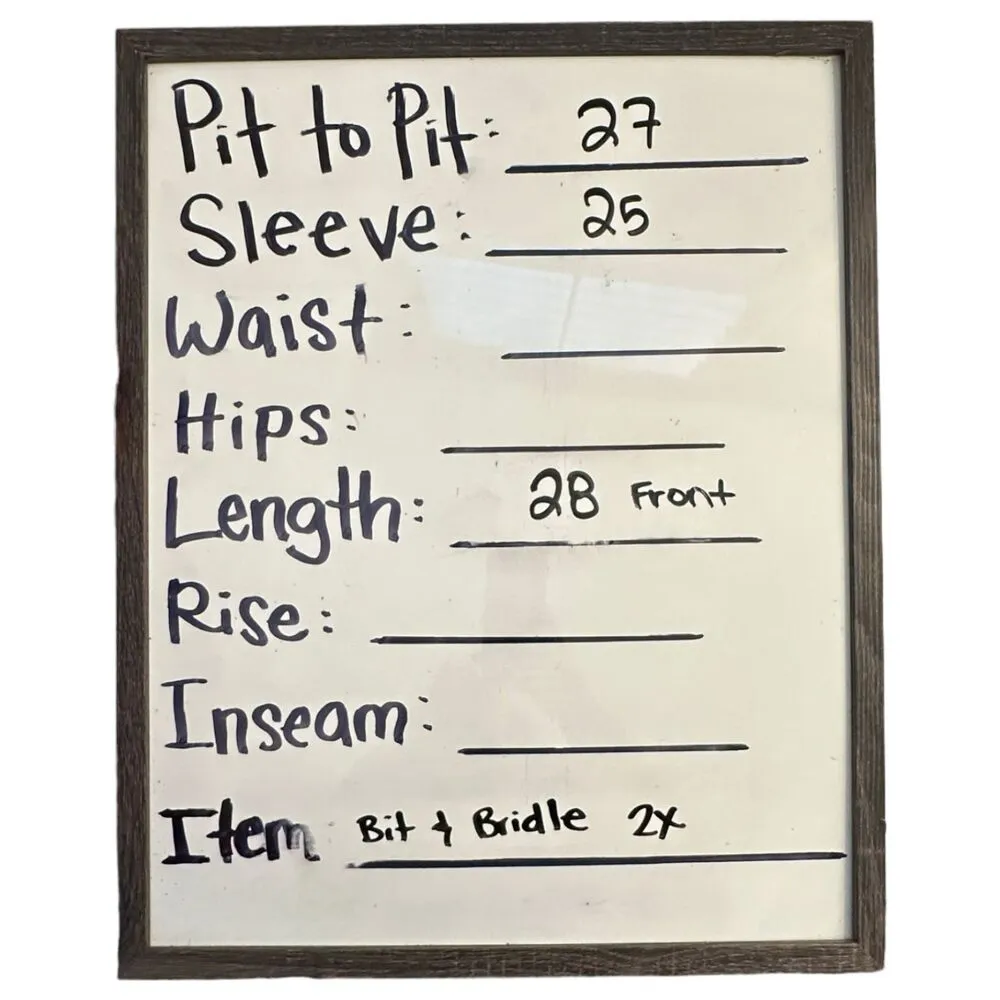 Pit to Pit: 27
Sleeve: 25
Waist:
Hips:
Length: 28 Front
Rise:
Inseam:
Item Bit & Bridle 2X